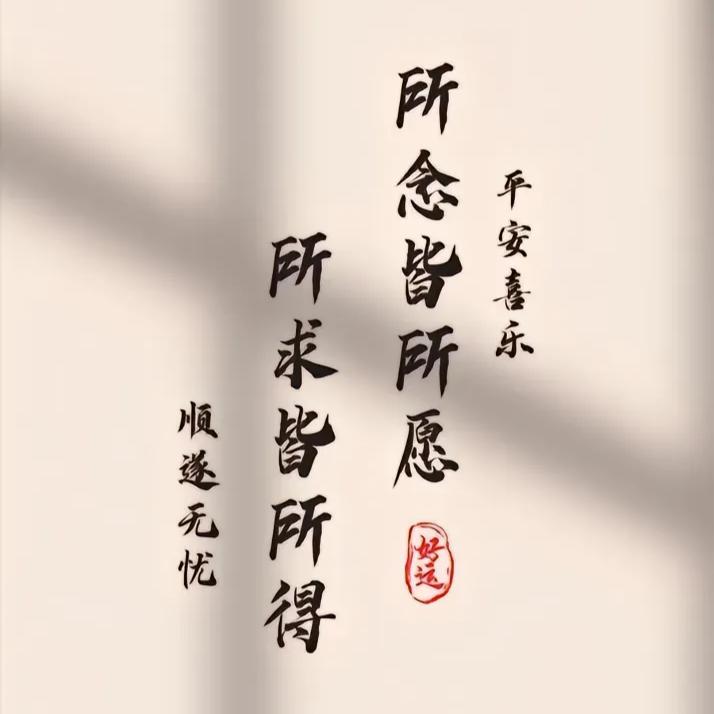 平安喜乐
所念皆所愿
好运
所求皆所得
顺遂无忧